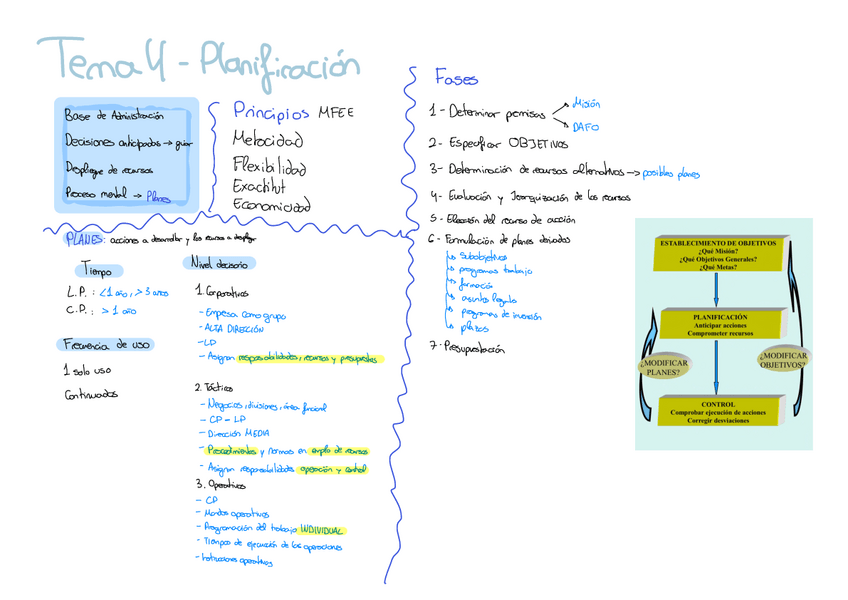 Tema 4 - Planificación
Base de Administración
Decisiones anticipadas → guiar
Despliegue de recursos
Proceso mental → Planes
Principios MFEE
Metocidad
Flexibilidad
Exactitut
Economicidad
PLANES: acciones a desarrollar y los recursos a desplegar
Tiempo
L.P.: <1 año, > 3 años
C.P.: > 1 año
Frecuencia de uso
1 solo uso
Continuados
Nivel decisorio
1. Corporativos
- Empresa como grupo
- ALTA DIRECCIÓN
- LD
- Asignan responsabilidades, recursos y presupuestos
2. Tácticos
- Negocios, divisiones, área funcional
- CP - LP
- Dirección MEDIA
- Procedimientos y normas en empleo de recursos
- Asignan responsabilidades operación y control
3. Operativos
- CP
- Mandos operativos
- Programación del trabajo INDIVIDUAL
- Tiempos de ejecución de las operaciones
- Instrucciones operativas
Fases
1- Determinar premisas
Misión
DAFO
2- Especificar OBJETIVOS
3- Determinación de recursos alternativos → posibles planes
4- Evaluación y Jerarquización de los recursos
5- Elección del recurso de acción
6- Formulación de planes derivados
subobjetivos
programas trabajo
formación
programas de inversión
plazos
7- Presupuestación
ESTABLECIMIENTO DE OBJETIVOS
¿Qué Misión?
¿Qué Objetivos Generales?
¿Qué Metas?
PLANIFICACIÓN
Anticipar acciones
Comprometer recursos
¿MODIFICAR
PLANES?
¿MODIFICAR
OBJETIVOS?
CONTROL
Comprobar ejecución de acciones
Corregir desviaciones